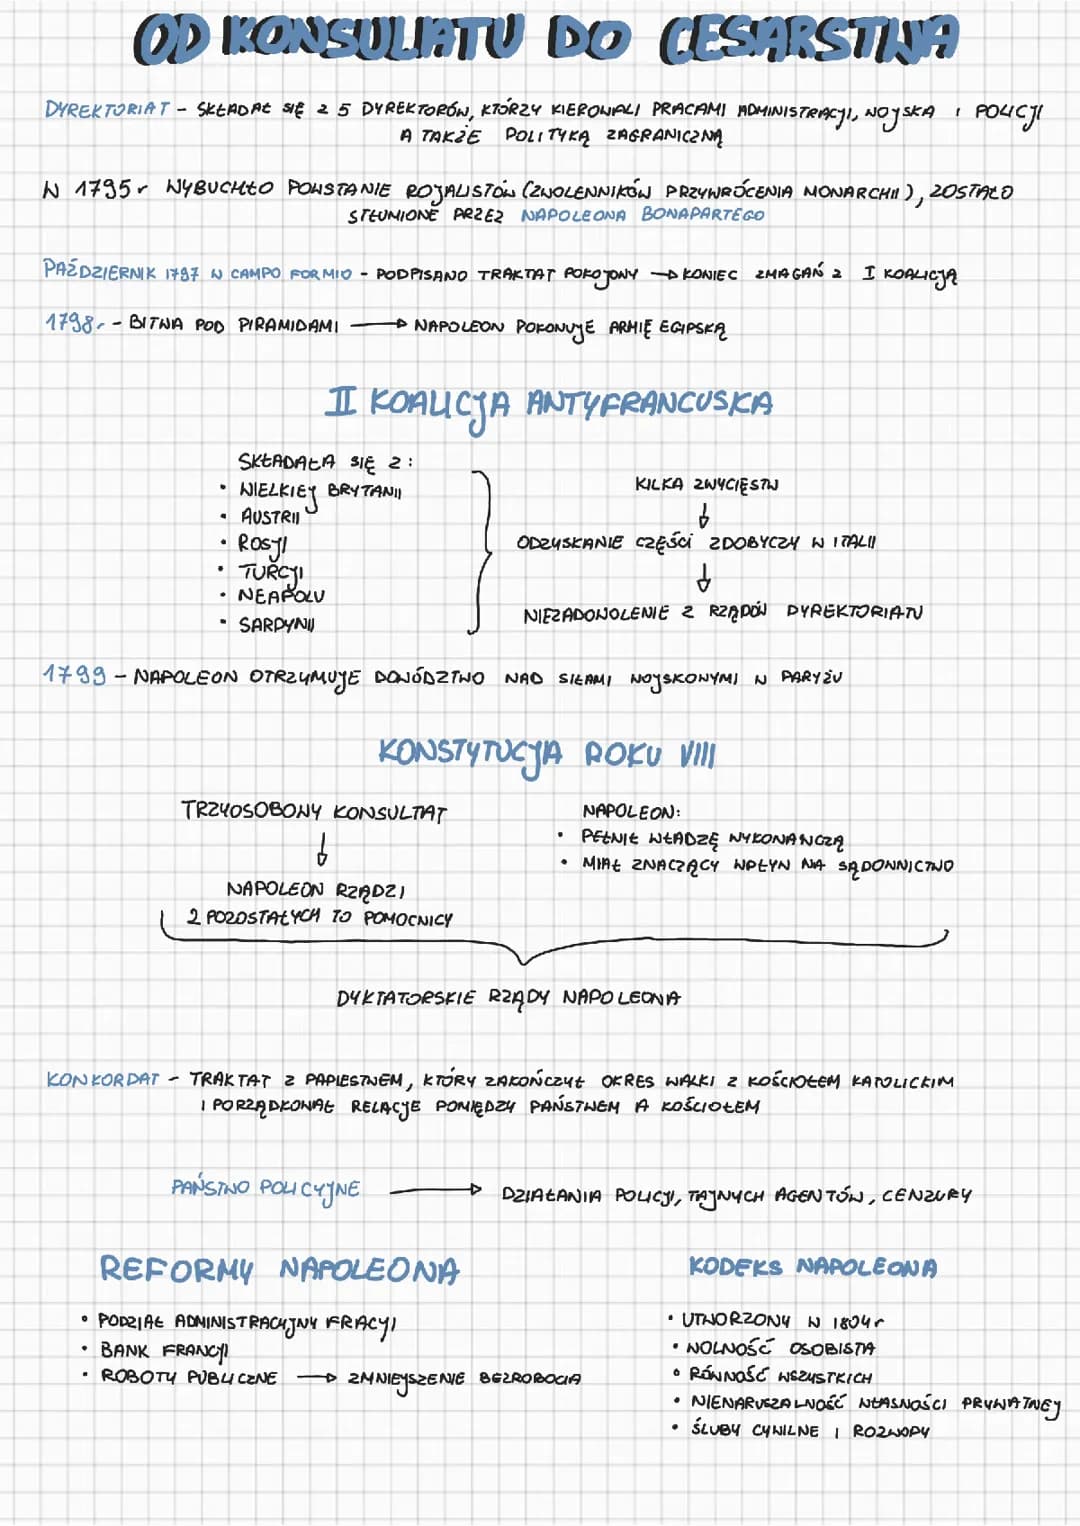 OD KONSULATU DO CESARSTWA
DYREKTORIAT - SKŁADAŁ SIĘ Z 5 DYREKTORÓW, KTÓRZY KIEROWALI PRACAMI ADMINISTRACJI, WOJSKA I POLICJI
A TAKŻE POLITYKĄ ZAGRANICZNĄ
W 1795r WYBUCHŁO POWSTANIE ROJALISTÓW (ZWOLENNIKÓW PRZYWRÓCENIA MONARCHII), ZOSTAŁO
STŁUMIONE PRZEZ NAPOLEONA BONAPARTEGO
PAŹDZIERNIK 1797 W CAMPO FORMIO - PODPISANO TRAKTAT POKOJOWY → KONIEC ZMAGAŃ Z I KOALICJĄ
1798r - BITWA POD PIRAMIDAMI → NAPOLEON POKONUJE ARMIĘ EGIPSKĄ
II KOALICJA ANTYFRANCUSKA
SKŁADAŁA SIĘ Z:
• WIELKIEJ BRYTANII
• AUSTRII
• ROSJI
• TURCJI
• NEAPOLU
• SARDYNII
KILKA ZWYCIĘSTW
↓
ODZYSKANIE CZĘŚCI ZDOBYCZY W ITALII
↓
NIEZADOWOLENIE Z RZĄDÓW DYREKTORIATU
1799 - NAPOLEON OTRZYMUJE DOWÓDZTWO NAD SIŁAMI WOJSKOWYMI W PARYŻU
KONSTYTUCJA ROKU VIII
TRZYOSOBOWY KONSULTAT
↓
NAPOLEON RZĄDZI
2 POZOSTAŁYCH TO POMOCNICY
NAPOLEON:
• PEŁNIŁ WŁADZĘ WYKONAWCZĄ
• MIAŁ ZNACZĄCY WPŁYW NA SĄDOWNICTWO
DYKTATORSKIE RZĄDY NAPOLEONA
KONKORDAT - TRAKTAT Z PAPIESTWEM, KTÓRY ZAKOŃCZYŁ OKRES WALKI Z KOŚCIOŁEM KATOLICKIM
I PORZĄDKOWAŁ RELACJE POMIĘDZY PAŃSTWEM A KOŚCIOŁEM
PAŃSTWO POLICYJNE → DZIAŁANIA POLICJI, TAJNYCH AGENTÓW, CENZURY
REFORMY NAPOLEONA
• PODZIAŁ ADMINISTRACYJNY FRACJI
• BANK FRANCJI
• ROBOTY PUBLICZNE → ZMNIEJSZENIE BEZROBOCIA
KODEKS NAPOLEONA
• UTWORZONY W 1804r
• WOLNOŚĆ OSOBISTA
• RÓWNOŚĆ WSZYSTKICH
• NIENARUSZALNOŚĆ WŁASNOŚCI PRYWATNEJ
• ŚLUBY CYWILNE I ROZWODY